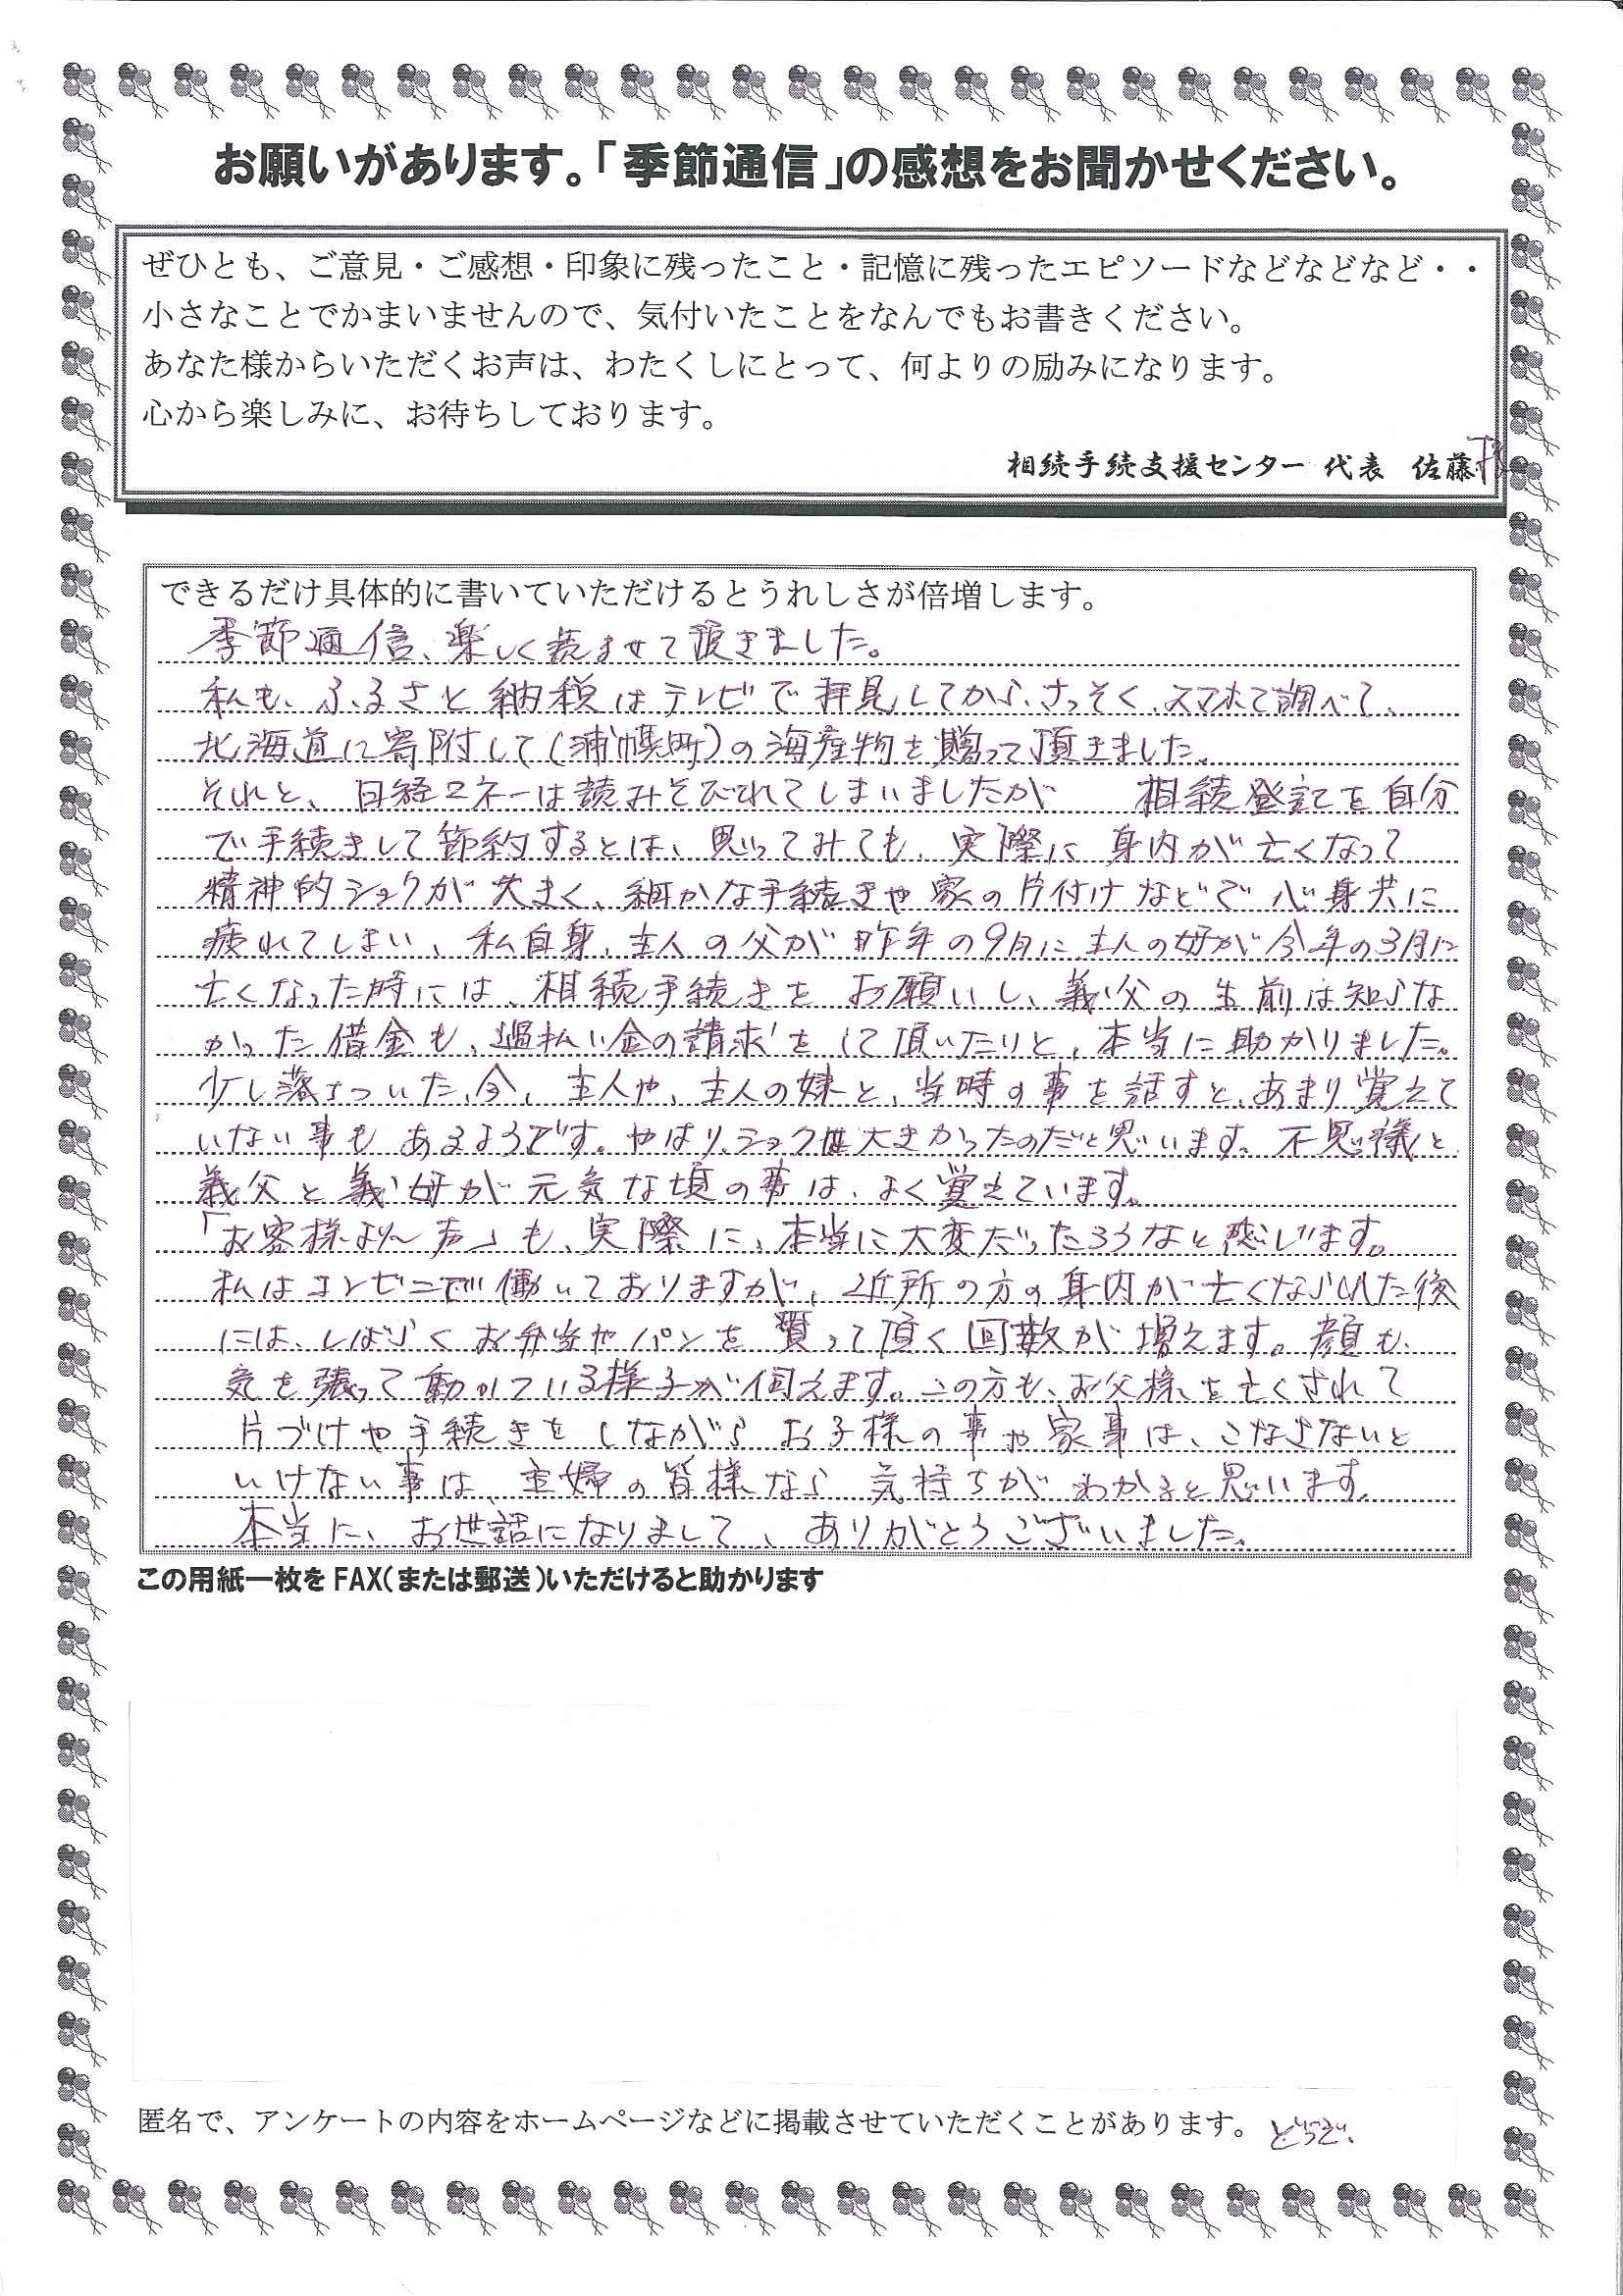 お願いがあります。「季節通信」の感想をお聞かせください。
ぜひとも、ご意見・ご感想・印象に残ったこと・記憶に残ったエピソードなどなどなど・・
小さなことでかまいませんので、気付いたことをなんでもお書きください。
あなた様からいただくお声は、わたくしにとって、何よりの励みになります。
心から楽しみに、お待ちしております。
相続手続支援センター 代表 佐藤
できるだけ具体的に書いていただけるとうれしさが倍増します。
季節通信、楽しく読ませて頂きました。
私も、ふるさと納税はテレビで拝見してから、さっそく、スマホで調べて、
北海道に寄附して(浦幌町)の海産物を贈って頂きました。
それと、日経マネーは読みそびれてしまいましたが 相続登記を自分
で手続きして節約するとは、思ってみても、実際に身内が亡くなって
精神的ショックが大きく、細かな手続きや家の片付けなどで心身共に
疲れてしまい、私自身、主人の父が昨年の9月に主人の母が今年の3月に
亡くなった時には、相続手続きをお願いし、義父の生前は知らな
かった借金も、過払い金の請求をして頂いたりと、本当に助かりました。
少し落ちついた、今、主人や、主人の妹と、当時の事を話すと、あまり覚えて
いない事もあるようです。やはり、ショックは大きかったのだと思います。不思議と
義父と義母が元気な頃の事は、よく覚えています。
「お客様より声」も、実際に、本当に大変だったろうなと感じます。
私はコンビニで働いておりますが、近所の方の身内が亡くなられた後
には、しばらくお弁当やパンを買って頂く回数が増えます。顔も、
気を張って動いている様子が伺えます。この方も、お父様を亡くされて
片づけや手続きをしながらお子様の事や家事は、こなさないと
いけない事は、主婦の皆様なら気持ちがわかると思います。
本当に、お世話になりまして、ありがとうございました。
この用紙一枚をFAX(または郵送)いただけると助かります
匿名で、アンケートの内容をホームページなどに掲載させていただくことがあります。 どうぞ、